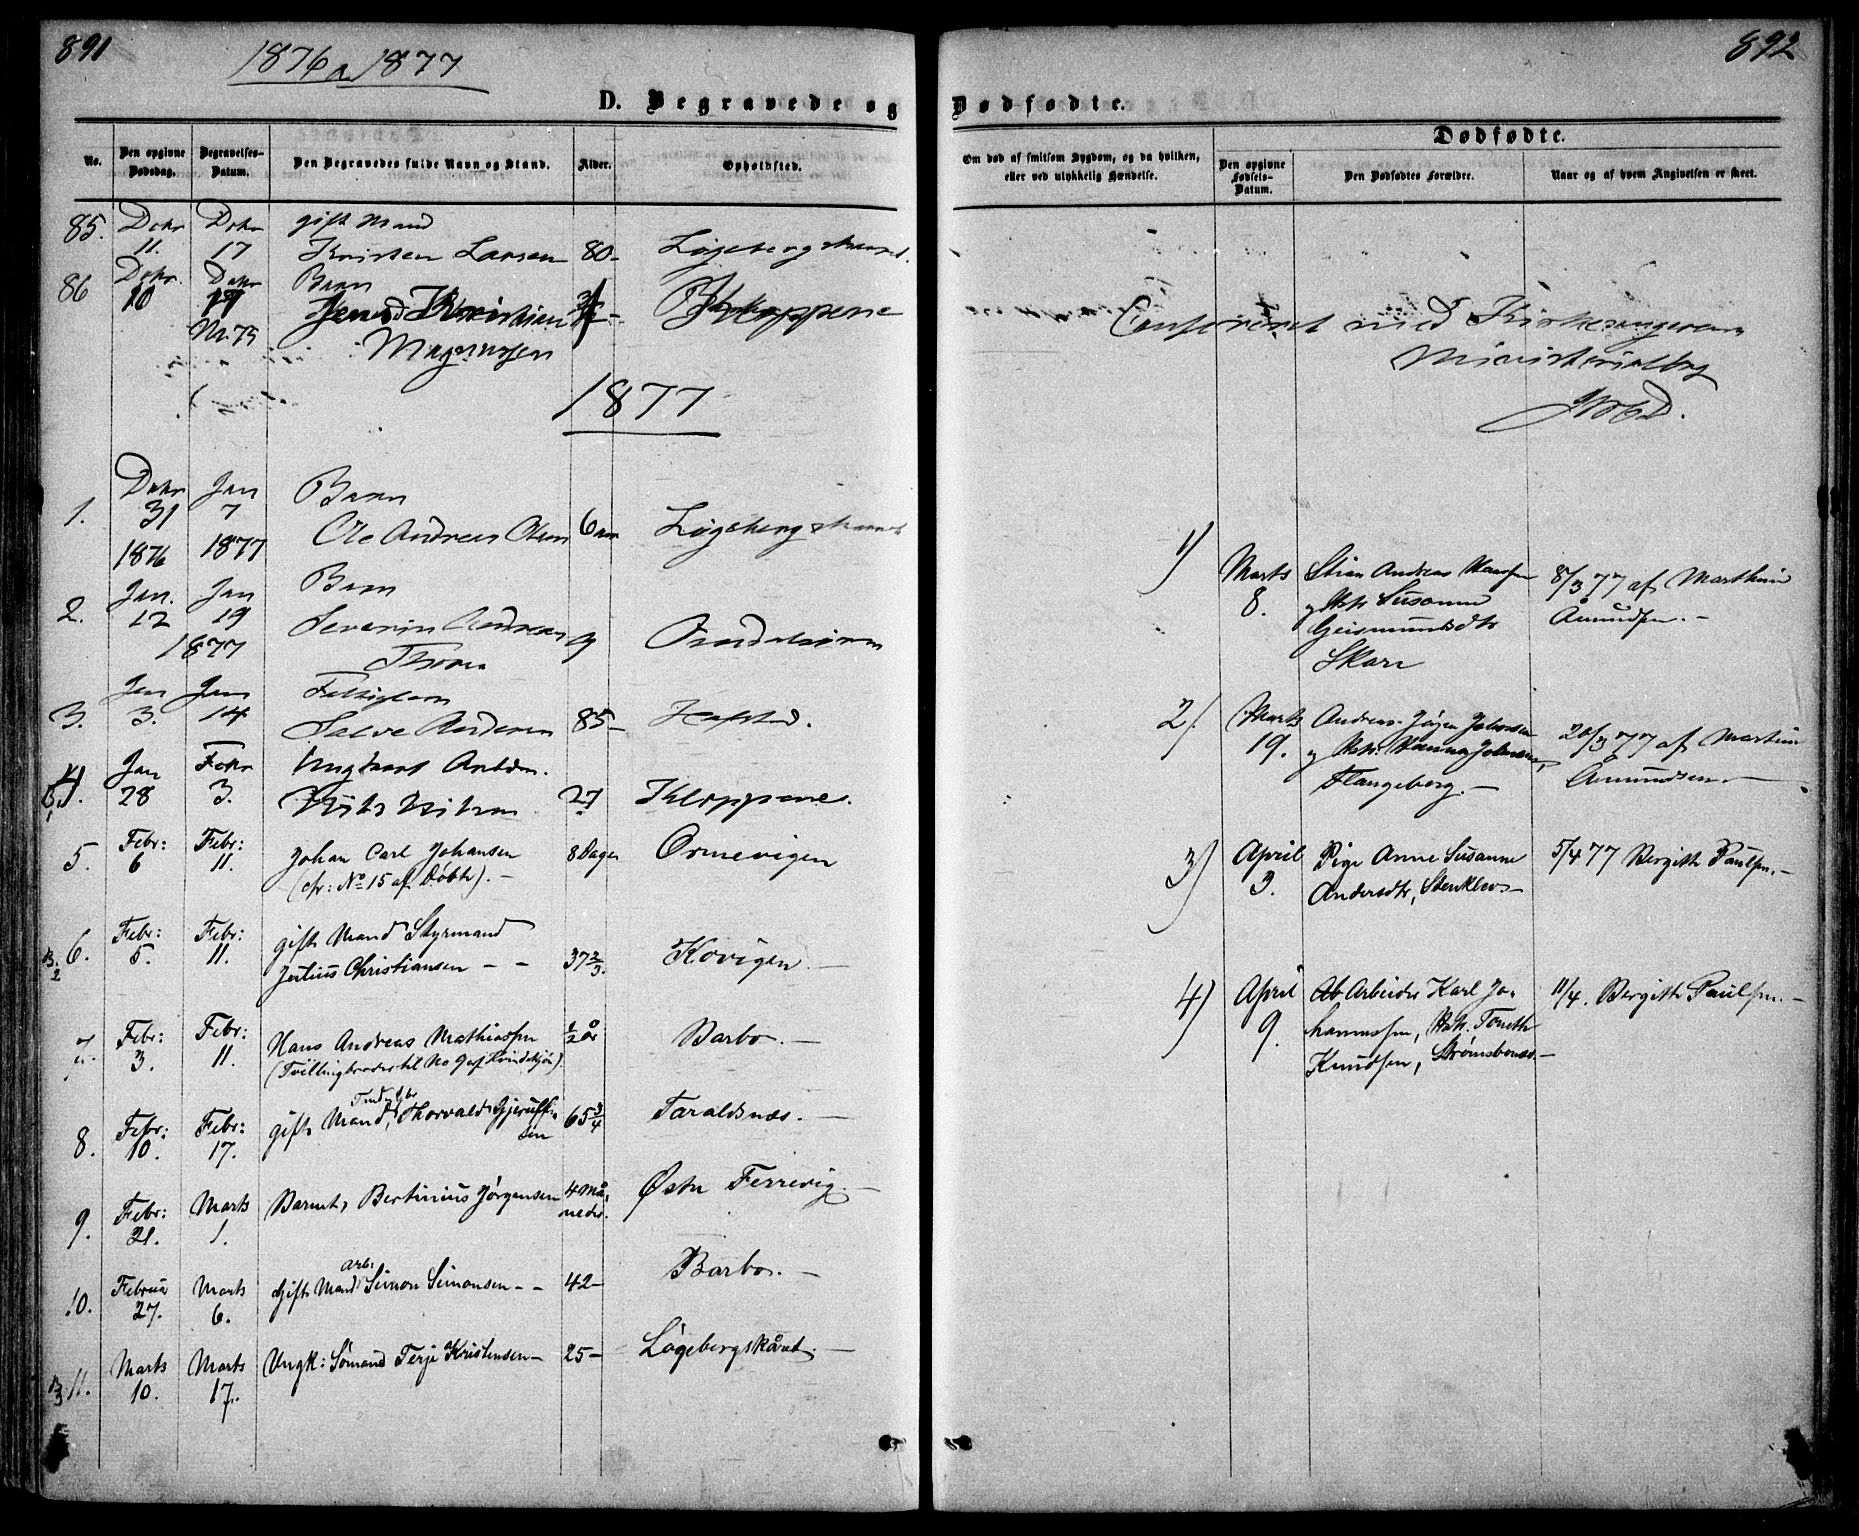 891
1876 a 1877
D. Begravede og
No.
Den opgivne Dødsdag.
Begravelses-Datum.
Den Begravedes fulde Navn og Stand.
Alder.
Opholdsted.
85. Debr 11. Debr 17 gift Mand
Kristen Larsen 80-
86 Debr. 10 Debr 17 Barn
Kristian
Magnussen Kloppene
1877
1. Debr 31 1876 Jan 7 1877 Barn
Ole Andreas Olsen 6
2. Jan. 12 Jan 19 1877 Barn
Severin Andreas 9
3. Jan 3. Jan 14
Salve Andersen 85-
4. Jan 28 Febr 3. Ungkarl
27 Kloppene.
5. Febr: 6 Febr: 11. Johan Carl Johansen 8 Dage Ormevigen
(cfr: No 15 af Døbte). -
6. Febr: 5. Febr: 11. gift Mand Styrmand
Julius Christiansen - - 37 2/3. Kovigen. -
7. Febr: 3. Febr: 11. Hans Andreas Mathiassen 1/2 år Barbo. -
(Tvillingbroder til No 9 af Kvindekjøn).
8. Febr: 10. Febr: 17. gift Mand, Thorvald Gjerulf- 65 3/4 Taraldsnæs. -
sen
9. Febr: 21. Marts 1. Barnet, Bertinius Jørgensen 4 Må- Østre Ferrevig. -
neder.
10. Februar 27. Marts 6. Gift Mand Arb. Simon Simonsen - - 42- Barbo. -
11. Marts 10. Marts 17. Ungk: Sømand Terje Kristensen - 25-
892
Dødfødte.
Om død af smitsom Sygdom, og da hvilken,
eller ved ulykkelig Hændelse.
Dødfødte.
Den opgivne Fødsels-Datum.
Den Dødfødtes Forældre.
Naar og af hvem Angivelsen er skeet.
Confereret med Kirkesangerens
Ministerialbog
1) Marts 8. Stian Andreas Hansen 8/3 77 af Marthin
og Hstr Susanne Åmundsen. -
Skare
2). Marts 19. Andreas Jørgen Jakobsen 20/3 77 af Martin
og Hstr. Hanna Åmundsen. -
Flangeborg. -
3) April 3. Pige Anne Susanne 5/4 77 Bergith Paulsen. -
Andersdtr,
4) April 9. Ab Arbeider Karl Jo- 11/4. Bergith Paulsen. -
hannessen, Hstr. Toneth
Knudsen, Strømsbonæs. -